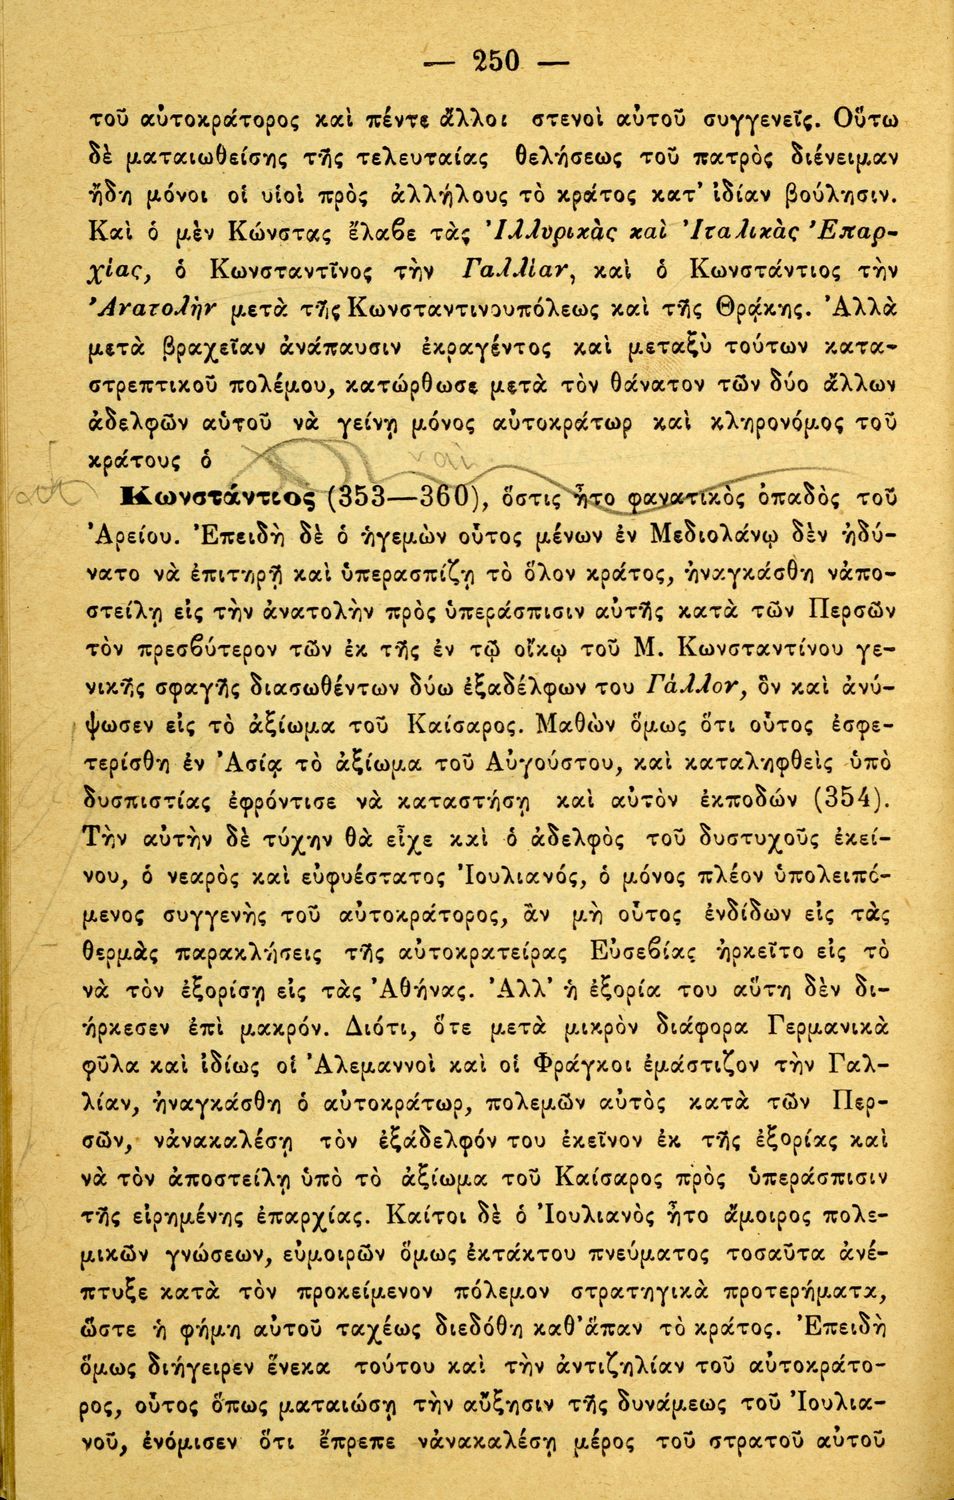 — 250 —
τοῦ αὐτοκράτορος καὶ πέντε ἄλλοι στενοὶ αὐτοῦ συγγενεῖς. Οὕτω
δὲ ματαιωθείσης τῆς τελευταίας θελήσεως τοῦ πατρὸς διένειμαν
ἤδη μόνοι οἱ υἱοὶ πρὸς ἀλλήλους τὸ κράτος κατ' ἰδίαν βούλησιν.
Καὶ ὁ μὲν Κώνστας ἔλαβε τὰς Ἰλλυρικὰς καὶ Ἰταλικὰς Ἐπαρ-
χίας, ὁ Κωνσταντῖνος τὴν Γαλλίαν, καὶ ὁ Κωνστάντιος τὴν
Ἀνατολὴν μετὰ τῆς Κωνσταντινουπόλεως καὶ τῆς Θρᾴκης. Ἀλλὰ
μετὰ βραχεῖαν ἀνάπαυσιν ἐκραγέντος καὶ μεταξὺ τούτων κατα-
στρεπτικοῦ πολέμου, κατώρθωσε μετὰ τὸν θάνατον τῶν δύο ἄλλων
ἀδελφῶν αὑτοῦ νὰ γείνῃ μόνος αὐτοκράτωρ καὶ κληρονόμος τοῦ
κράτους ὁ
ναι
Κωνστάντιος (353—360), ὅστις ἦτο φανατικὸς ὀπαδὸς τοῦ
Ἀρείου. Ἐπειδὴ δὲ ὁ ἡγεμὼν οὗτος μένων ἐν Μεδιολάνῳ δὲν ἠδύ-
νατο νὰ ἐπιτηρῇ καὶ ὑπερασπίζῃ τὸ ὅλον κράτος, ἠναγκάσθη νἀπο-
στείλῃ εἰς τὴν ἀνατολὴν πρὸς ὑπεράσπισιν αὐτῆς κατὰ τῶν Περσῶν
τὸν πρεσβύτερον τῶν ἐκ τῆς ἐν τῷ οἴκῳ τοῦ Μ. Κωνσταντίνου γε-
νικῆς σφαγῆς διασωθέντων δύω ἐξαδέλφων του Γάλλον, ὃν καὶ ἀνύ-
ψωσεν εἰς τὸ ἀξίωμα τοῦ Καίσαρος. Μαθὼν ὅμως ὅτι οὗτος ἐσφε-
τερίσθη ἐν Ἀσίᾳ τὸ ἀξίωμα τοῦ Αὐγούστου, καὶ καταληφθεὶς ὑπὸ
δυσπιστίας ἐφρόντισε νὰ καταστήσῃ καὶ αὐτὸν ἐκποδών (354).
Τὴν αὐτὴν δὲ τύχην θὰ εἶχε κκὶ ὁ ἀδελφὸς τοῦ δυστυχοῦς ἐκεί-
νου, ὁ νεαρὸς καὶ εὐφυέστατος Ἰουλιανός, ὁ μόνος πλέον ὑπολειπό-
μενος συγγενὴς τοῦ αὐτοκράτορος, ἂν μὴ οὗτος ἐνδίδων εἰς τὰς
θερμὰς παρακλήσεις τῆς αὐτοκρατείρας Εὐσεβίας ἠρκεῖτο εἰς τὸ
νὰ τὸν ἐξορίσῃ εἰς τὰς Ἀθήνας. Ἀλλ' ἡ ἐξορία του αὕτη δὲν δι-
ήρκεσεν ἐπὶ μακρόν. Διότι, ὅτε μετὰ μικρὸν διάφορα Γερμανικὰ
φῦλα καὶ ἰδίως οἱ Ἀλεμαννοὶ καὶ οἱ Φράγκοι ἐμάστιζον τὴν Γαλ-
λίαν, ἠναγκάσθη ὁ αὐτοκράτωρ, πολεμῶν αὐτὸς κατὰ τῶν Περ-
σῶν, νἀνακαλέσῃ τὸν ἐξάδελφόν του ἐκεῖνον ἐκ τῆς ἐξορίας καὶ
νὰ τὸν ἀποστείλῃ ὑπὸ τὸ ἀξίωμα τοῦ Καίσαρος πρὸς ὑπεράσπισιν
τῆς εἰρημένης ἐπαρχίας. Καίτοι δὲ ὁ Ἰουλιανὸς ἦτο ἄμοιρος πολε-
μικῶν γνώσεων, εὐμοιρῶν ὅμως ἐκτάκτου πνεύματος τοσαῦτα ἀνέ-
πτυξε κατὰ τὸν προκείμενον πόλεμον στρατηγικὰ προτερήματα,
ὥστε ἡ φήμη αὐτοῦ ταχέως διεδόθη καθ' ἅπαν τὸ κράτος. Ἐπειδὴ
ὅμως διήγειρεν ἕνεκα τούτου καὶ τὴν ἀντιζηλίαν τοῦ αὐτοκράτο-
ρος, οὗτος ὅπως ματαιώσῃ τὴν αὔξησιν τῆς δυνάμεως τοῦ Ἰουλια-
νοῦ, ἐνόμισεν ὅτι ἔπρεπε νἀνακαλέσῃ μέρος τοῦ στρατοῦ αὐτοῦ